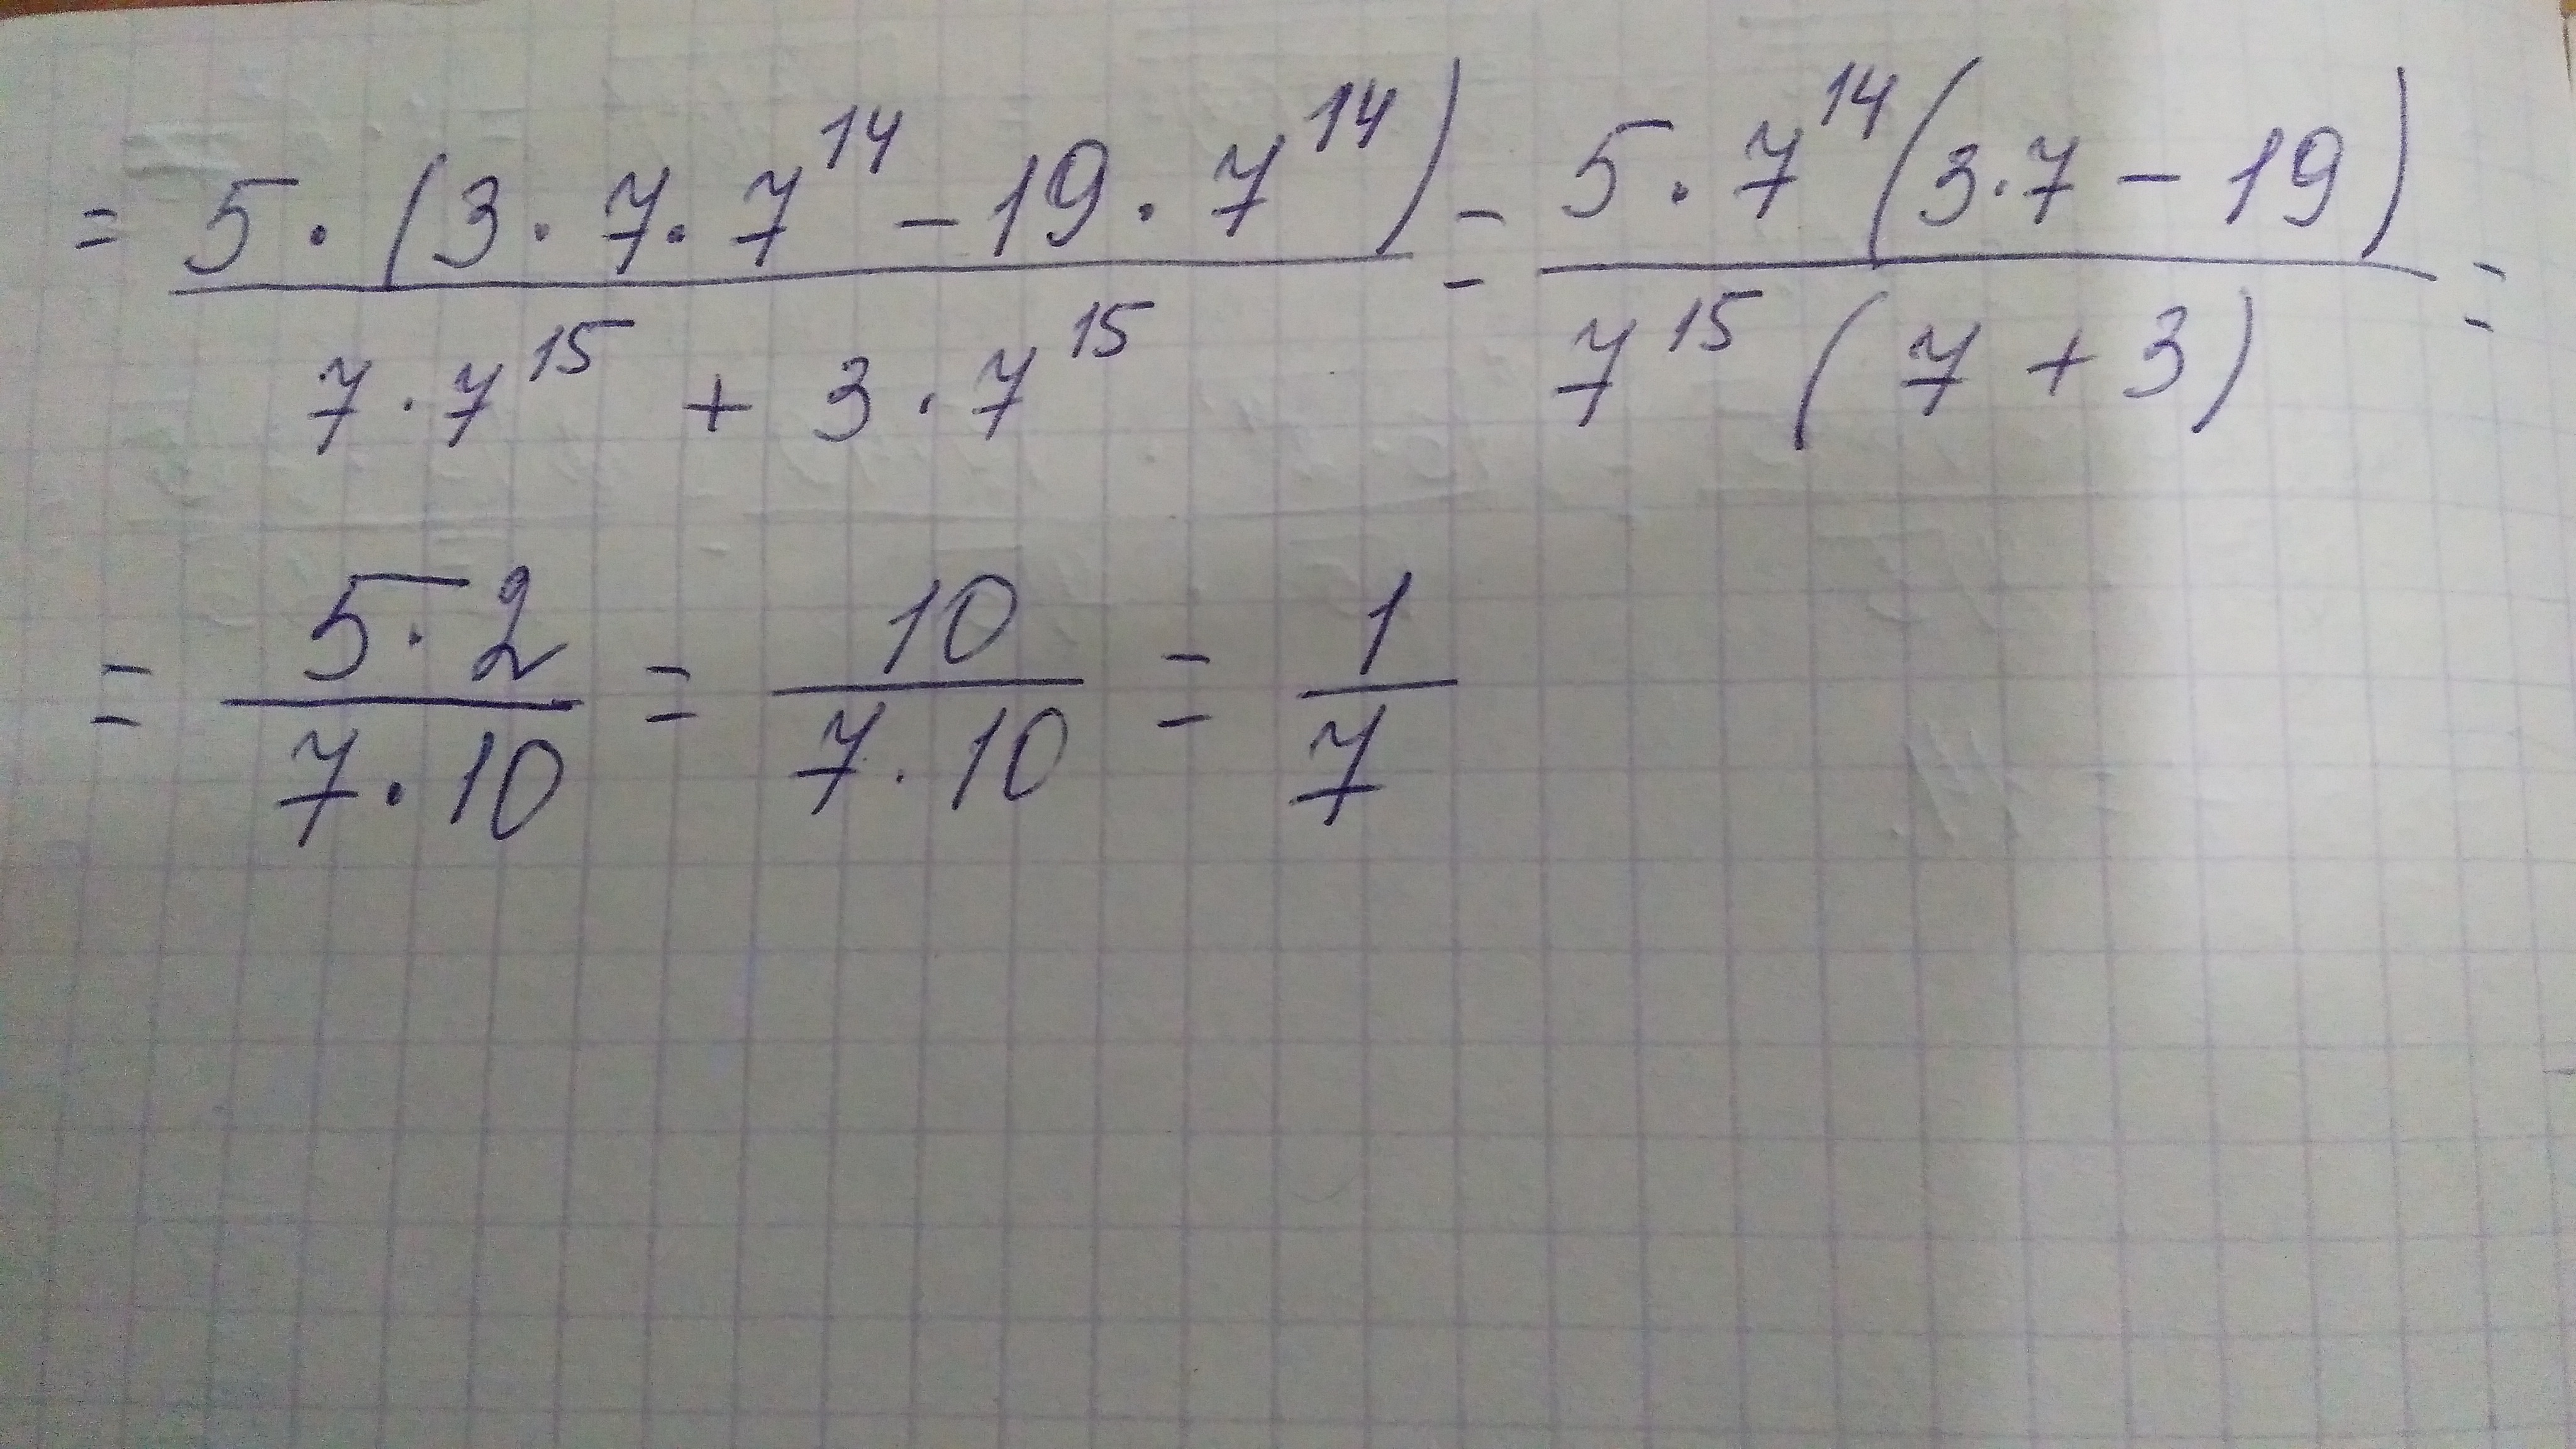 = \frac{5 \cdot (3 \cdot 7 \cdot 7^{14} - 19 \cdot 7^{14})}{7 \cdot 7^{15} + 3 \cdot 7^{15}} = \frac{5 \cdot 7^{14} (3 \cdot 7 - 19)}{7^{15} (7 + 3)} =
= \frac{5 \cdot 2}{7 \cdot 10} = \frac{10}{7 \cdot 10} = \frac{1}{7}